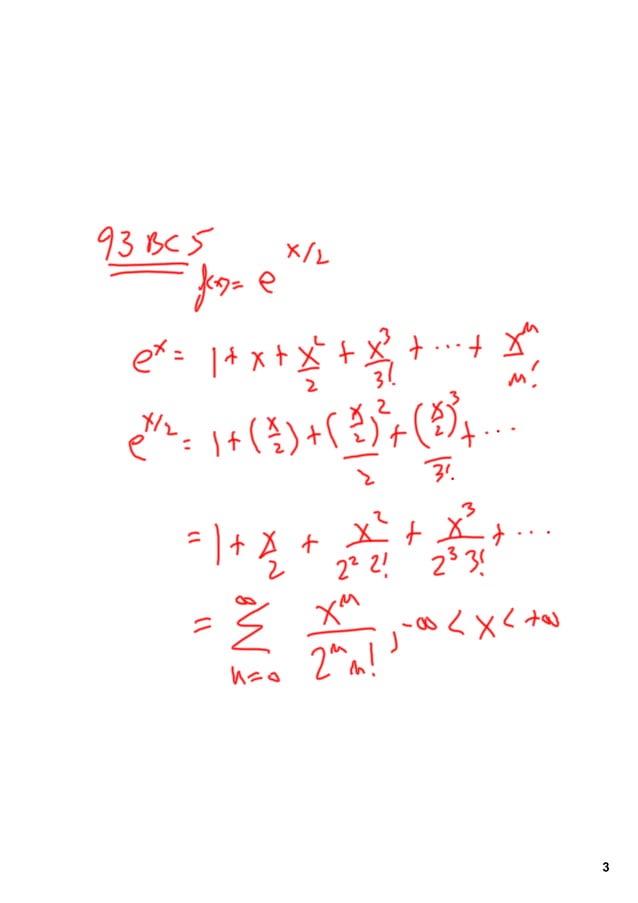 93 BC 5
f(x) = e^{x/2}
e^x = 1 + x + \frac{x^2}{2} + \frac{x^3}{3!} + ⋯ + \frac{x^n}{n!}
e^{x/2} = 1 + (\frac{x}{2}) + \frac{(\frac{x}{2})^2}{2} + \frac{(\frac{x}{2})^3}{3!} + ⋯
= 1 + \frac{x}{2} + \frac{x^2}{2^2 2!} + \frac{x^3}{2^3 3!} + ⋯
= \sum_{n=0}^{∞} \frac{x^n}{2^n n!}, -∞ < x < +∞
3